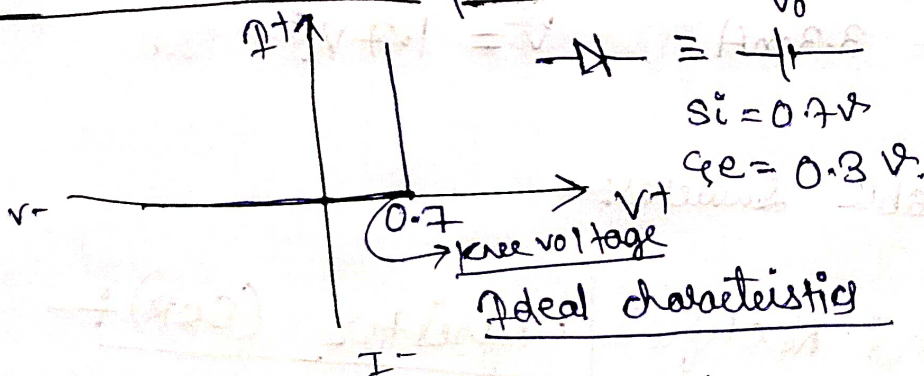 I+
V0
≡
Si = 0.7 V
Ge = 0.3 V.
V-
0.7
V+
knee voltage
Ideal characteistics
I-